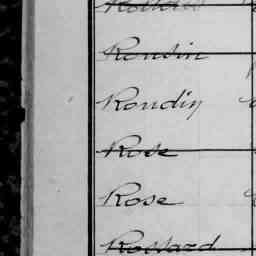 Rousin
Roudin
Rose
Rose
Rossard